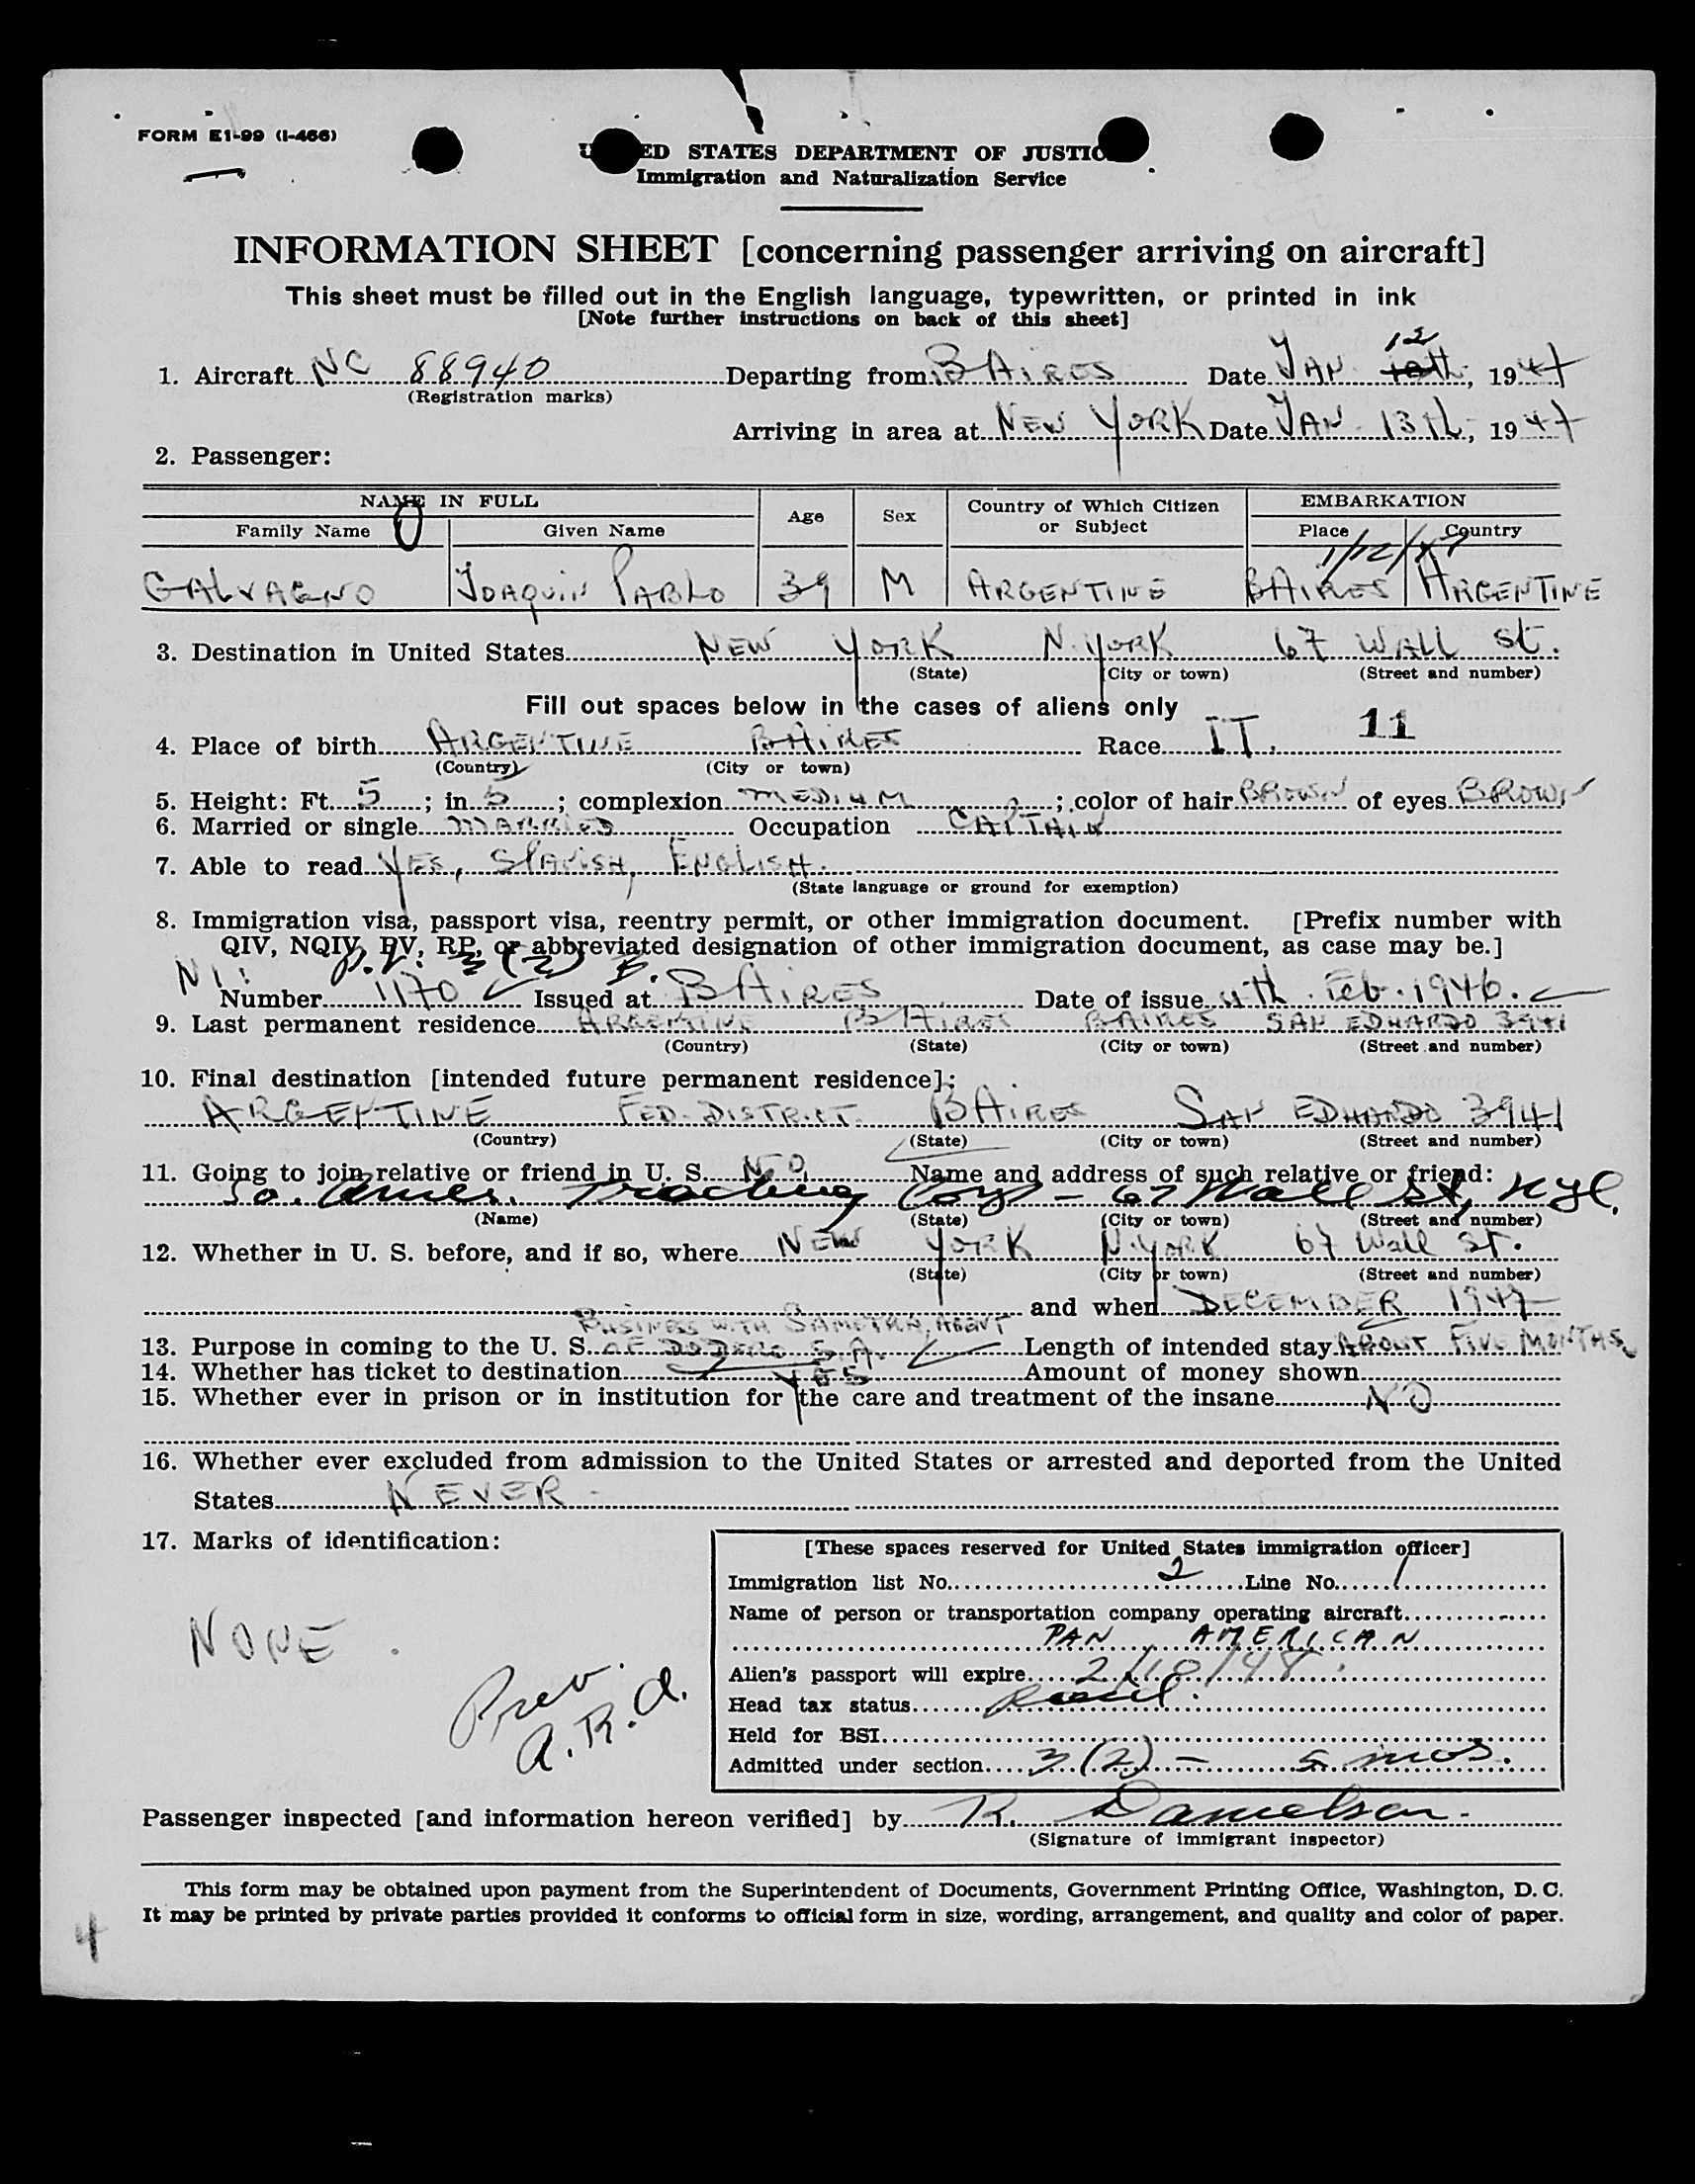 FORM E1-99 (I-466)
UNITED STATES DEPARTMENT OF JUSTICE
Immigration and Naturalization Service
INFORMATION SHEET [concerning passenger arriving on aircraft]
This sheet must be filled out in the English language, typewritten, or printed in ink
[Note further instructions on back of this sheet]
12
1. Aircraft NC 88940 Departing from B AIRES Date JAN 10th, 1947
(Registration marks)
Arriving in area at NEW YORK Date JAN. 13th, 1947
2. Passenger:
NAME IN FULL Age Sex Country of Which Citizen or Subject EMBARKATION
Family Name Given Name Place Country
1/12/47
GALVAGNO JOAQUIN PABLO 39 M ARGENTINE BAIRES ARGENTINE
3. Destination in United States NEW YORK N. YORK 67 WALL St.
(State) (City or town) (Street and number)
Fill out spaces below in the cases of aliens only
4. Place of birth ARGENTINE B AIRES Race IT. 11
(Country) (City or town)
5. Height: Ft. 5; in. 5; complexion MEDIUM; color of hair BROWN of eyes BROWN
6. Married or single MARRIED Occupation CAPTAIN
7. Able to read YES, SPANISH, ENGLISH.
(State language or ground for exemption)
8. Immigration visa, passport visa, reentry permit, or other immigration document. [Prefix number with
QIV, NQIV, PV, RP, or abbreviated designation of other immigration document, as case may be.]
P.V. 3 (2)
Number 1170 Issued at B AIRES Date of issue 11th. Feb. 1946.
9. Last permanent residence ARGENTINE B AIRES BAIRES SAN EDUARDO 3941
(Country) (State) (City or town) (Street and number)
10. Final destination [intended future permanent residence]:
ARGENTINE FED. DISTRICT. B AIRES SAN EDUARDO 3941
(Country) (State) (City or town) (Street and number)
11. Going to join relative or friend in U. S. NO. Name and address of such relative or friend:
So. Amer. Trading Corp - 67 Wall St, NYC.
(Name) (State) (City or town) (Street and number)
12. Whether in U. S. before, and if so, where NEW YORK N. YORK 67 Wall St.
(State) (City or town) (Street and number)
and when DECEMBER 1947
BUSINESS WITH AGENT
13. Purpose in coming to the U. S. OF DODERO S.A. Length of intended stay ABOUT FIVE MONTHS
14. Whether has ticket to destination YES Amount of money shown
15. Whether ever in prison or in institution for the care and treatment of the insane NO
16. Whether ever excluded from admission to the United States or arrested and deported from the United
States NEVER -
17. Marks of identification:
NONE.
Prev.
a.R.a.
[These spaces reserved for United States immigration officer]
Immigration list No. 2 Line No. 1
Name of person or transportation company operating aircraft
PAN AMERICAN
Alien's passport will expire 2/10/48.
Head tax status
Held for BSI
Admitted under section 3 (2) - 5 mos.
Passenger inspected [and information hereon verified] by R. Danielson.
(Signature of immigrant inspector)
This form may be obtained upon payment from the Superintendent of Documents, Government Printing Office, Washington, D. C.
It may be printed by private parties provided it conforms to official form in size, wording, arrangement, and quality and color of paper.
4